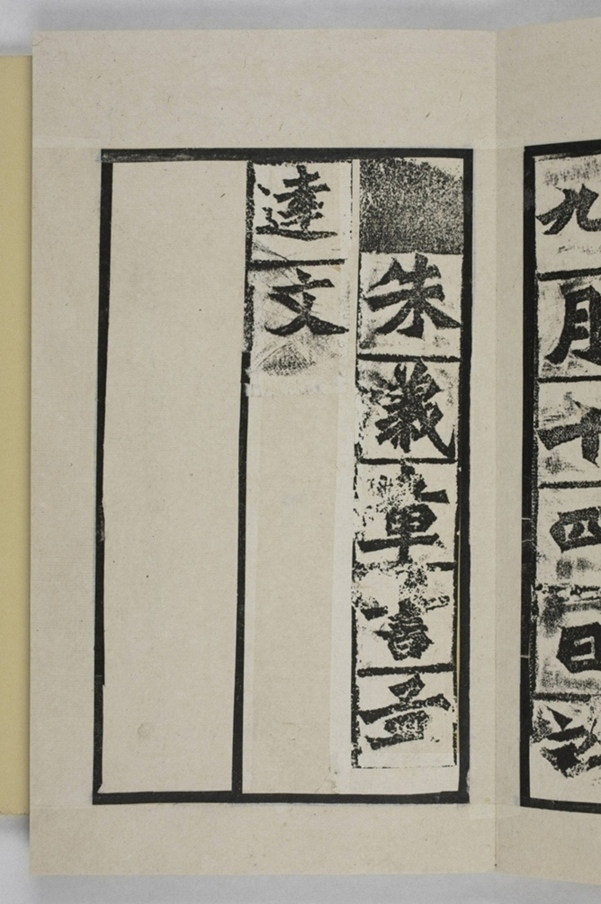 九月十四日訖
朱義章書孟
達文